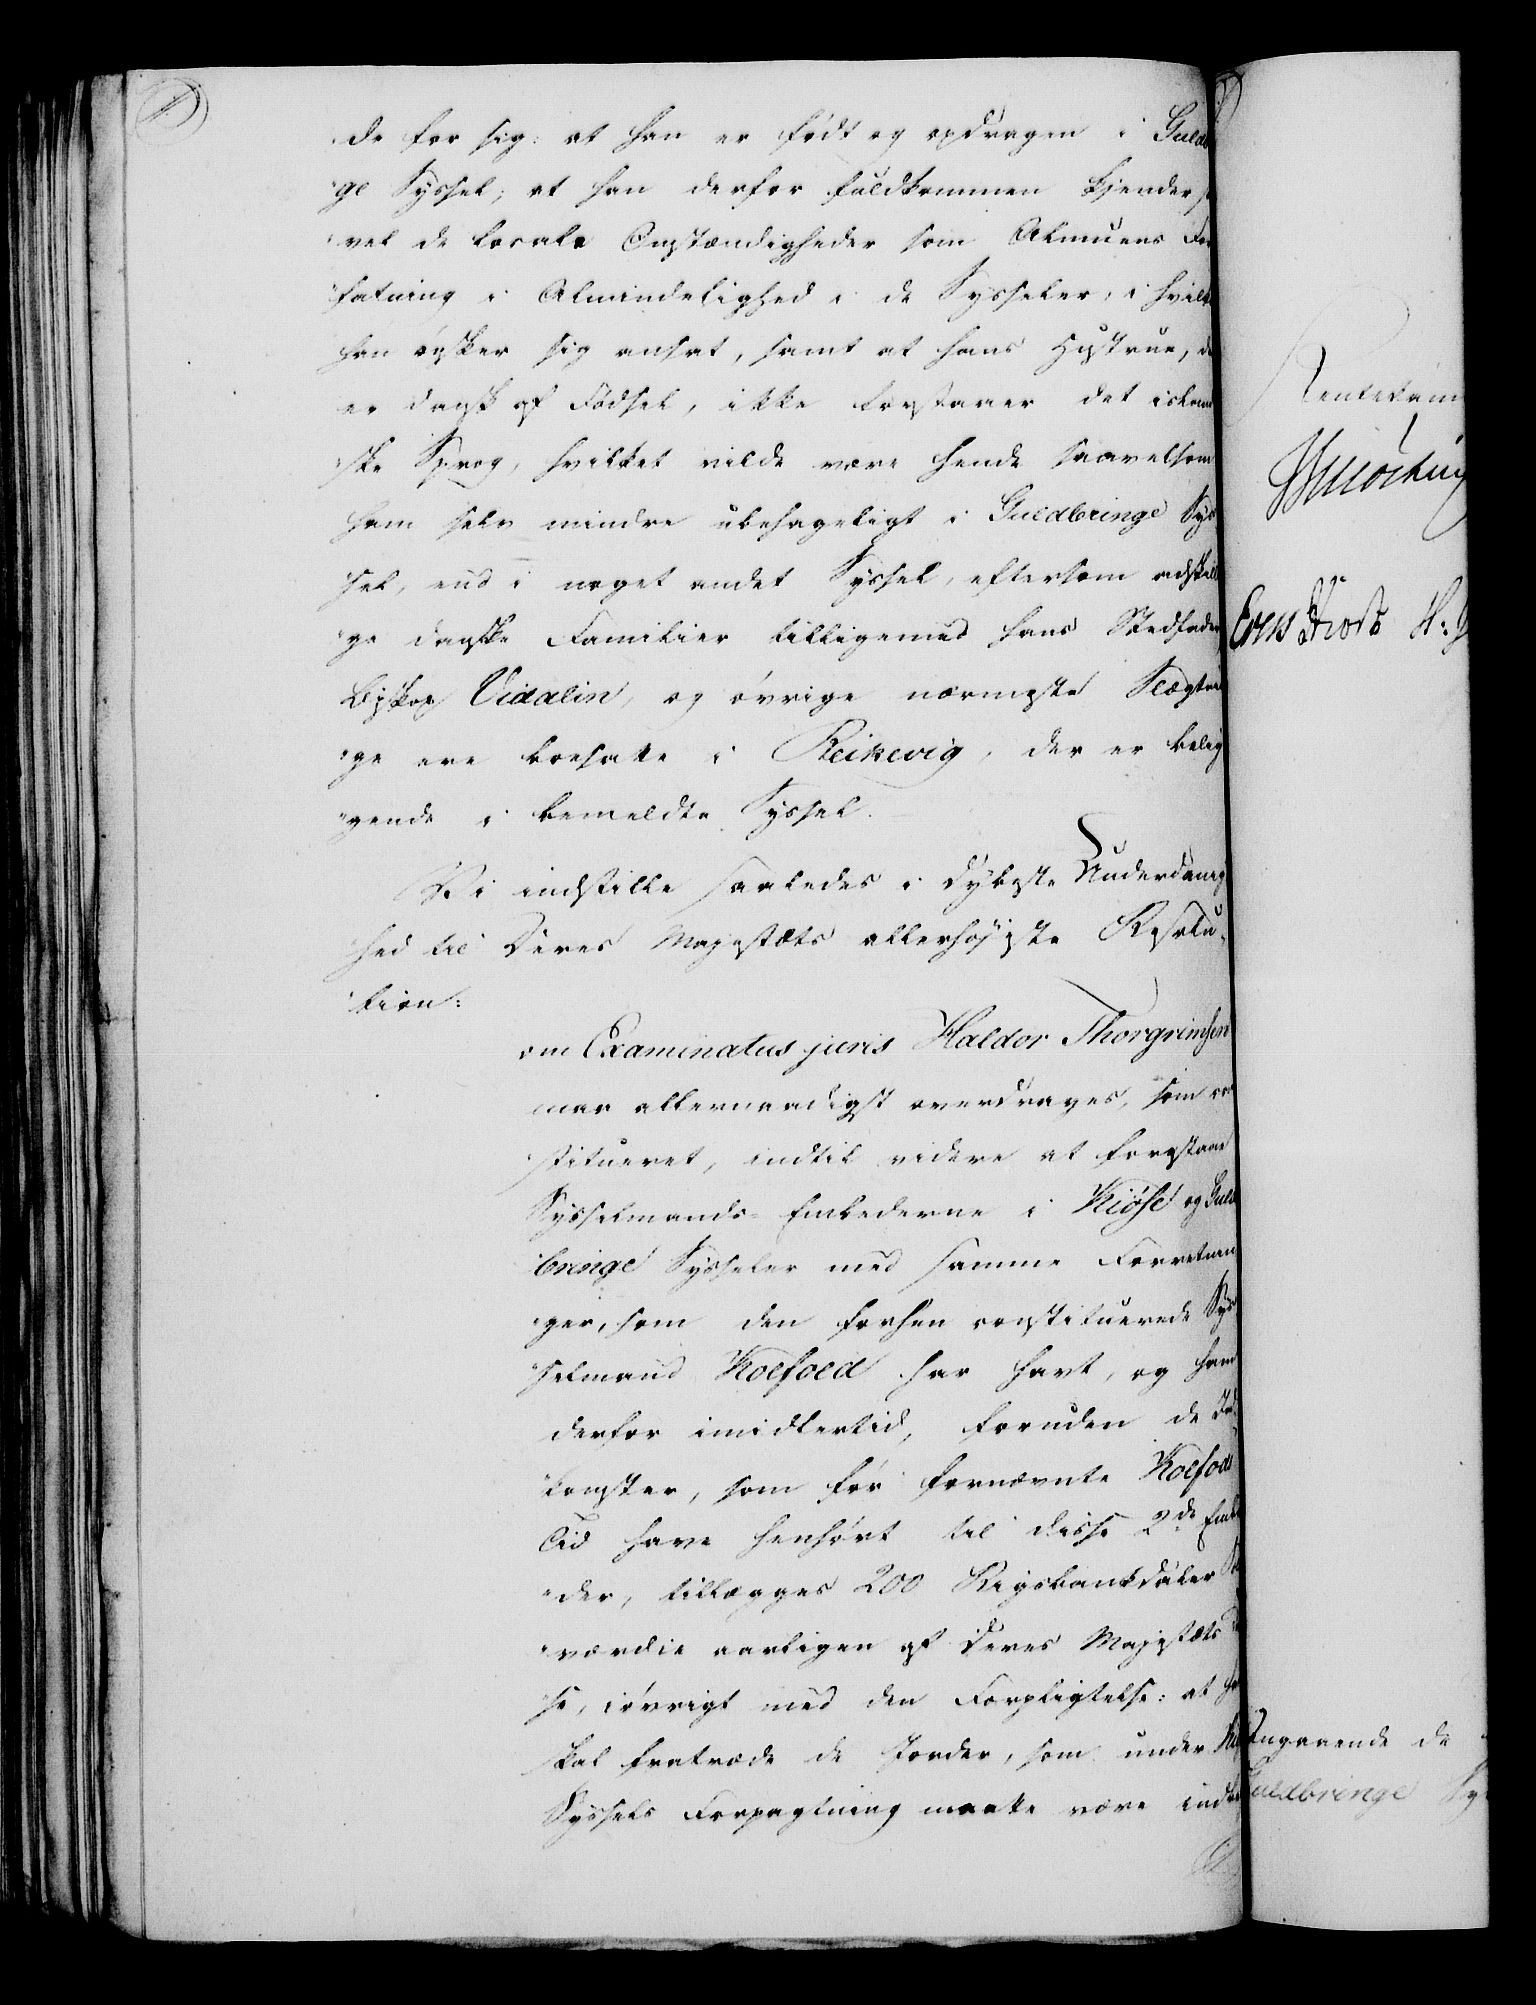 de for sig: at han er født og opdragen i Guld
ge Syssel; at han derfor fuldkommen kjender
vel de locale Omstændigheder som Almuens For
fatning i Almindelighed i de Sysseler, i hvilk
han ønsker sig ansat, samt at hans Hustrue, d
er dansk af Fødsel, ikke forstaaer det islan
ske Sprog, hvilket vilde være hende saavelsom
ham selv mindre ubehageligt i Guldbringe Sys
sel, end i noget andet Syssel, eftersom adskill
ge danske Familier tilligemed hans Stedfader,
Biskop Vidalin, og øvrige nærmeste Slægtni
ge ere boesatte i Reikevig, der er belig
gende i bemeldte Syssel.
Vi indstille saaledes i dybeste Underdanig
hed til Deres Majestæts allerhøjeste Resolu-
tion:
om Examinatus juris Haldor Thorgrimsen
maa allernaadigst overdrages, som con
stitueret, indtil videre at forestaae
Sysselmands-Embederne i Kiøse og Guld
bringe Sysseler med samme Forretnin
ger, som den forhen constituerede Sys
selmand Koefoed har havt, og ham
derfor imidlertid, foruden de Ind
komster, som før fornævnte Koefods
Tid have henhørt til disse 2de Embe
der, tillægges 200 Rigsbankdaler
værdie aarligen af Deres Majestæts
se, iøvrigt med den Forpligtelse: at ha
skal fratræde de Jorder, som under
Syssels Forpagtning maatte være ind
Rentekam
Erik
Angaaende de
Guldbringe Sy